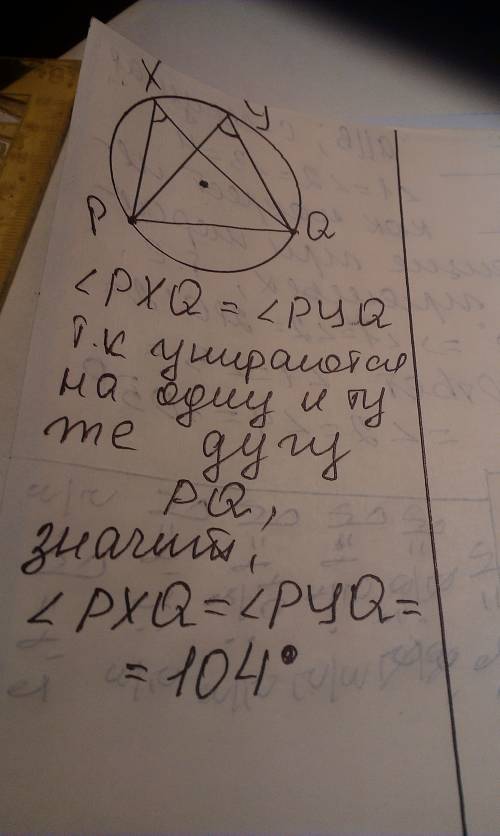 X
У
P
Q
∠PXQ = ∠PУQ
т.к упираются
на одну и ту
же дугу
PQ,
значит,
∠PXQ = ∠PУQ =
= 104°